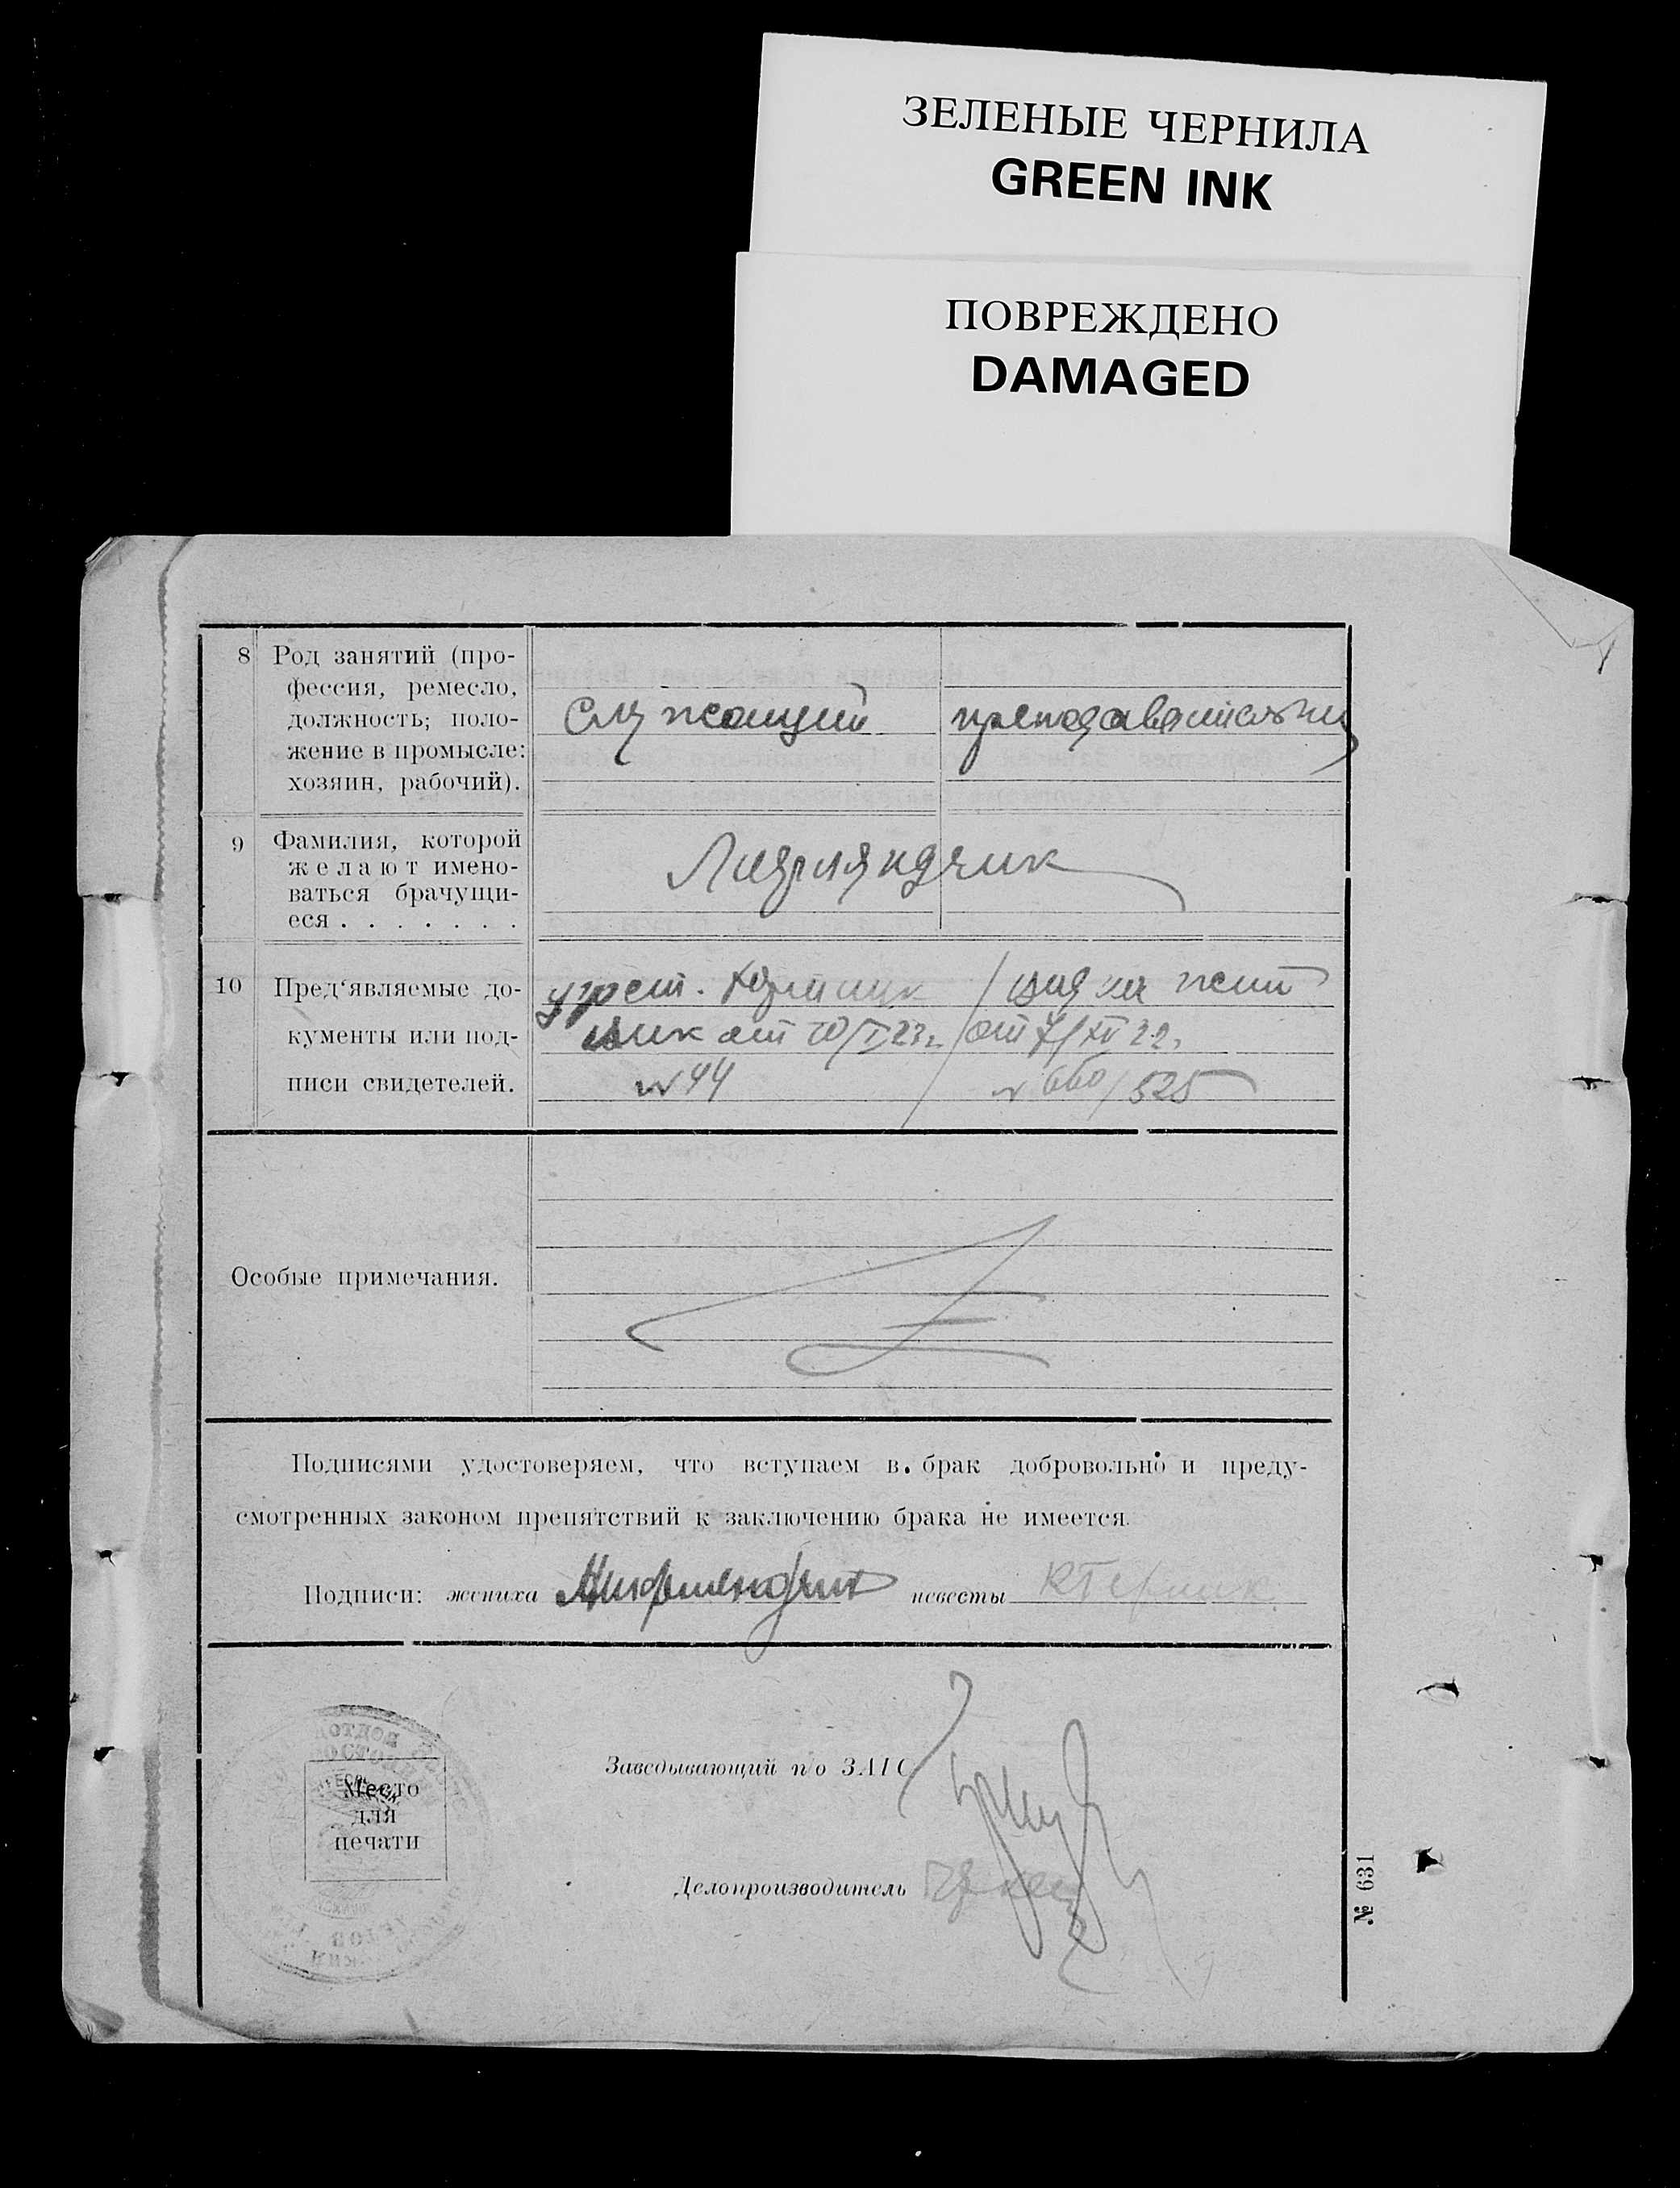 ЗЕЛЕНЫЕ ЧЕРНИЛА
GREEN INK
ПОВРЕЖДЕНО
DAMAGED
8 Род занятий (про-
фессия, ремесло,
должность; поло-
жение в промысле:
хозяин, рабочий).
служащий
преподавательниц
9 Фамилия, которой
желают имено-
ваться брачущи-
еся . . . . . . .
10 Пред‘являемые до-
кументы или под-
писи свидетелей.
от 20/I 23г.
№ 44
от 7/XII 22.
№ 660/525
Особые примечания.
Подписями удостоверяем, что вступаем в брак добровольно и преду-
смотренных законом препятствий к заключению брака не имеется.
Подписи: жениха невесты
Заведывающий п/о ЗАГС
Место
для
печати
Делопроизводитель
№ 631